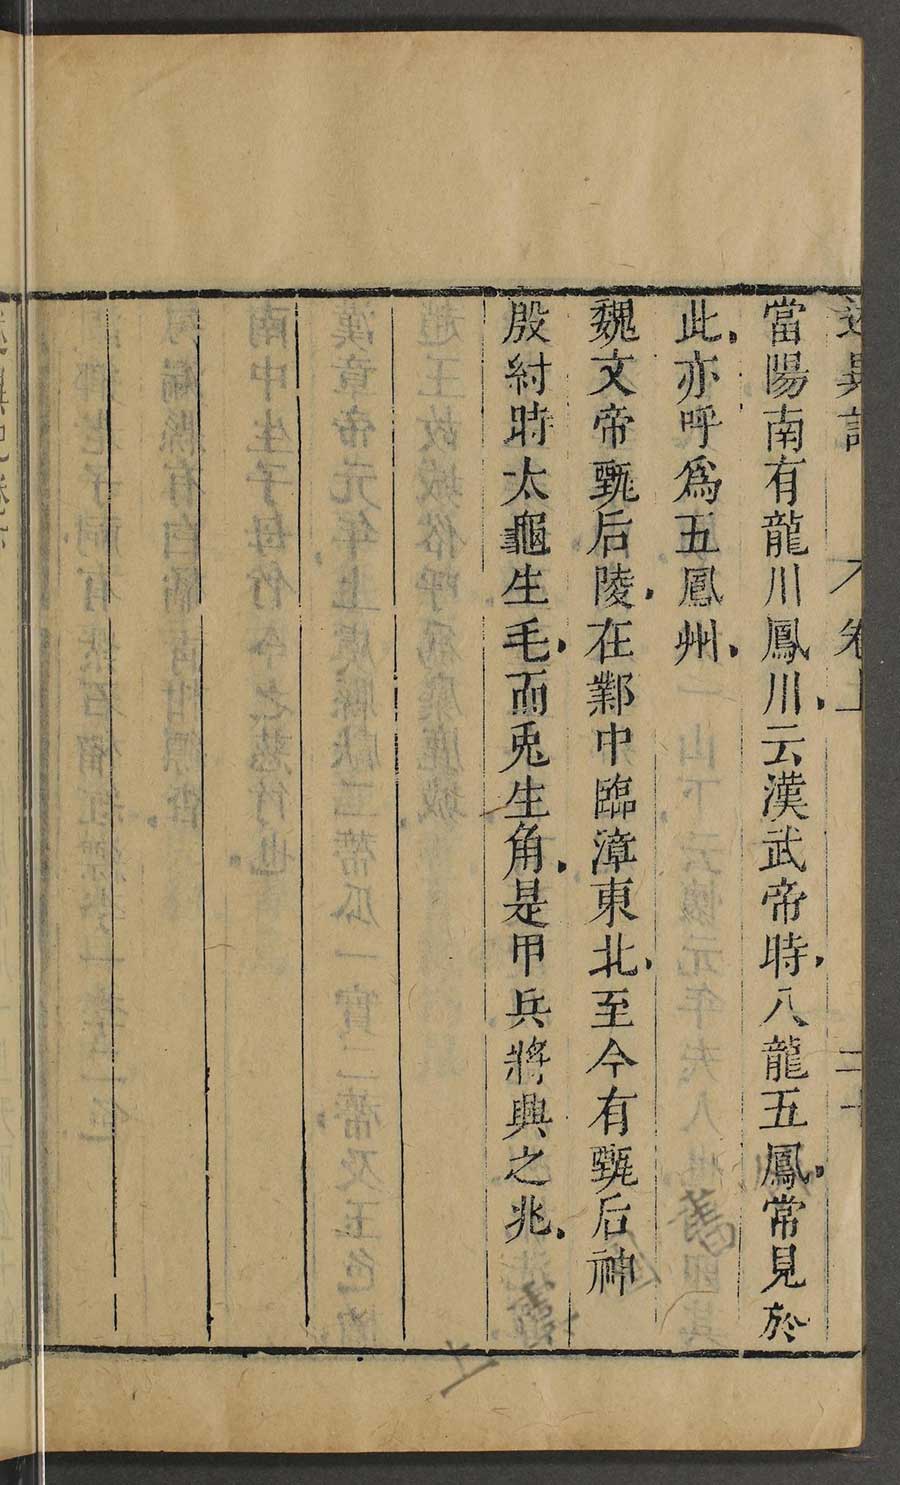 述異記 卷上 二十
當陽南有龍川鳳川云漢武帝時八龍五鳳常見於
此亦呼爲五鳳州
魏文帝甄后陵在鄴中臨漳東北至今有甄后神
殷紂時太龜生毛而兎生角是甲兵將興之兆